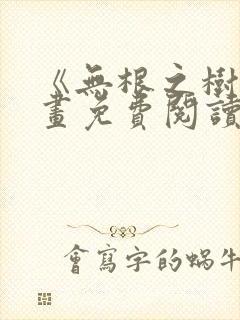 《無根之樹
畫免費閱讀
會寫字的蝸牛